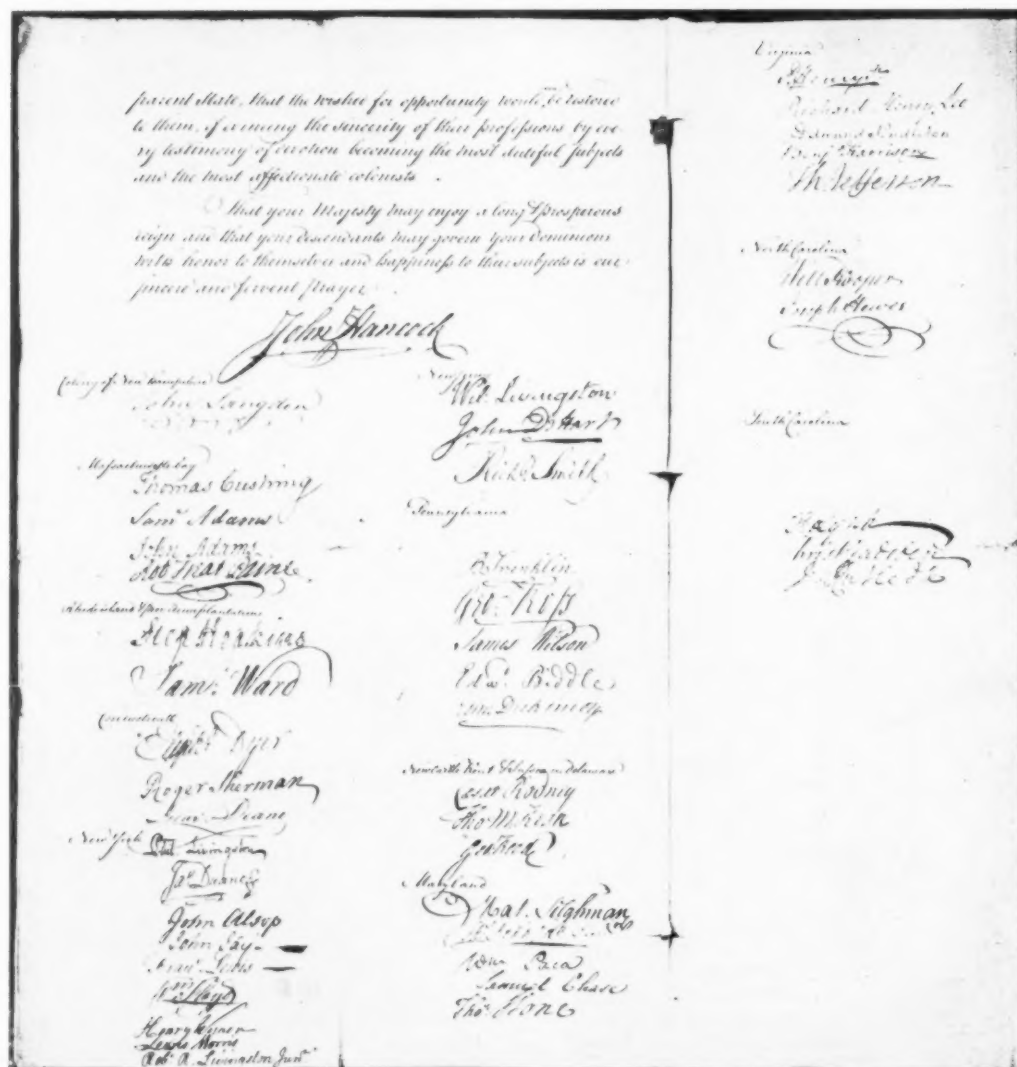 parent state, that the wished for opportunity would be restored
to them, of evincing the sincerity of their professions by eve-
ry testimony of devotion becoming the most dutiful subjects
and the most affectionate colonists.
That your Majesty may enjoy a long & prosperous
reign and that your descendants may govern your dominions
with honor to themselves and happiness to their subjects is our
sincere and fervent prayer.
John Hancock
Colony of New hampshire
John Langdon
Massachusetts bay
Thomas Cushing
Saml Adams
John Adams
Rob Treat Paine
Rhode island & providence plantations
Step Hopkins
Saml: Ward
Connecticut
Elipht Dyer
Roger Sherman
Silas Deane
New York
Phil. Livingston
Jas Duane
John Alsop
John Jay
Frans Lewis
Wm Floyd
Henry Wisner
Lewis Morris
Robt R. Livingston Junr
New Jersey
Wil: Livingston
John De Hart
Richd Smith
Pennsylvania
B Franklin
Geo: Ross
James Wilson
Edwd: Biddle
John Dickinson
Newcastle Kent & Sussex on Delaware
Caesar Rodney
Tho M:Kean
Geo Read
Maryland
Mat. Tilghman
Wm Paca
Samuel Chase
Thos Stone
Virginia
P. Henry Jr
Richard Henry Lee
Edmund Pendleton
Benj Harrison
Th: Jefferson
North Carolina
Will Hooper
Joseph Hewes
South Carolina
Chrs Gadsden
J. Rutledge